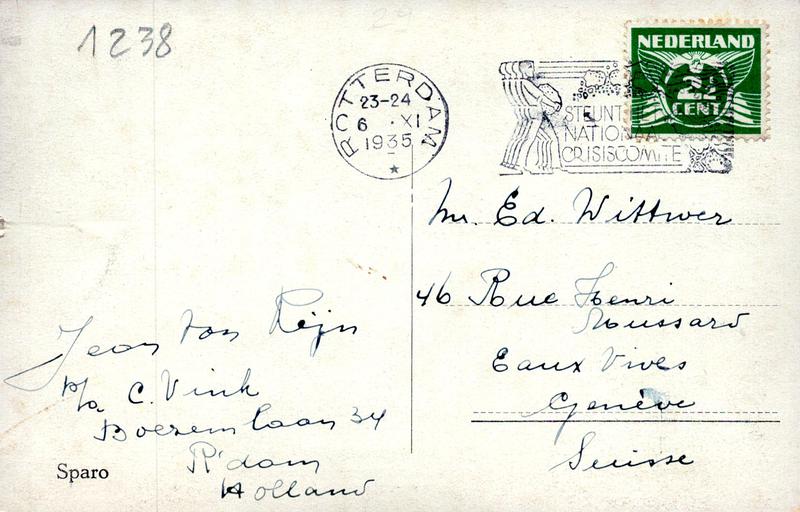 1238
ROTTERDAM
23-24
6 · XI
1935
STEUNT
NATIONAAL
CRISISCOMITE
NEDERLAND
2½
CENT
Mr. Ed. Wittwer
46 Rue Henri
Moussard
Eaux Vives
Genève
Suisse
Jean van Rijn
p/a C. Vink
Boezemlaan 34
R'dam
Holland
Sparo